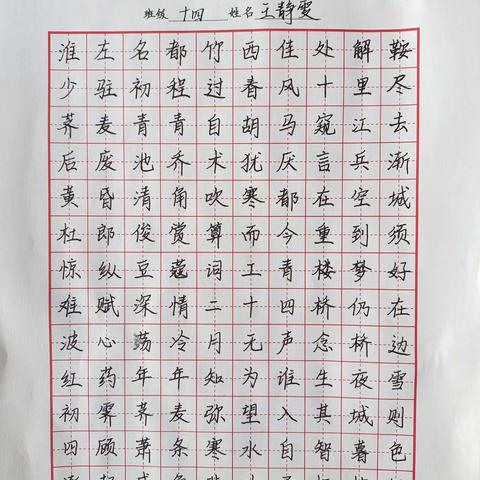 班级 十四 姓名 王静雯
淮左名都竹西佳处解鞍
少驻初程过春风十里尽
荠麦青青自胡马窥江去
后废池乔术犹厌言兵渐
黄昏清角吹寒都在空城
杜郎俊赏算而今重到须
惊纵豆蔻词工青楼梦好
难赋深情二十四桥仍在
波心荡冷月无声念桥边
红药年年知为谁生夜雪
初霁荠麦弥望入其城则
四顾萧条寒水自智暮色